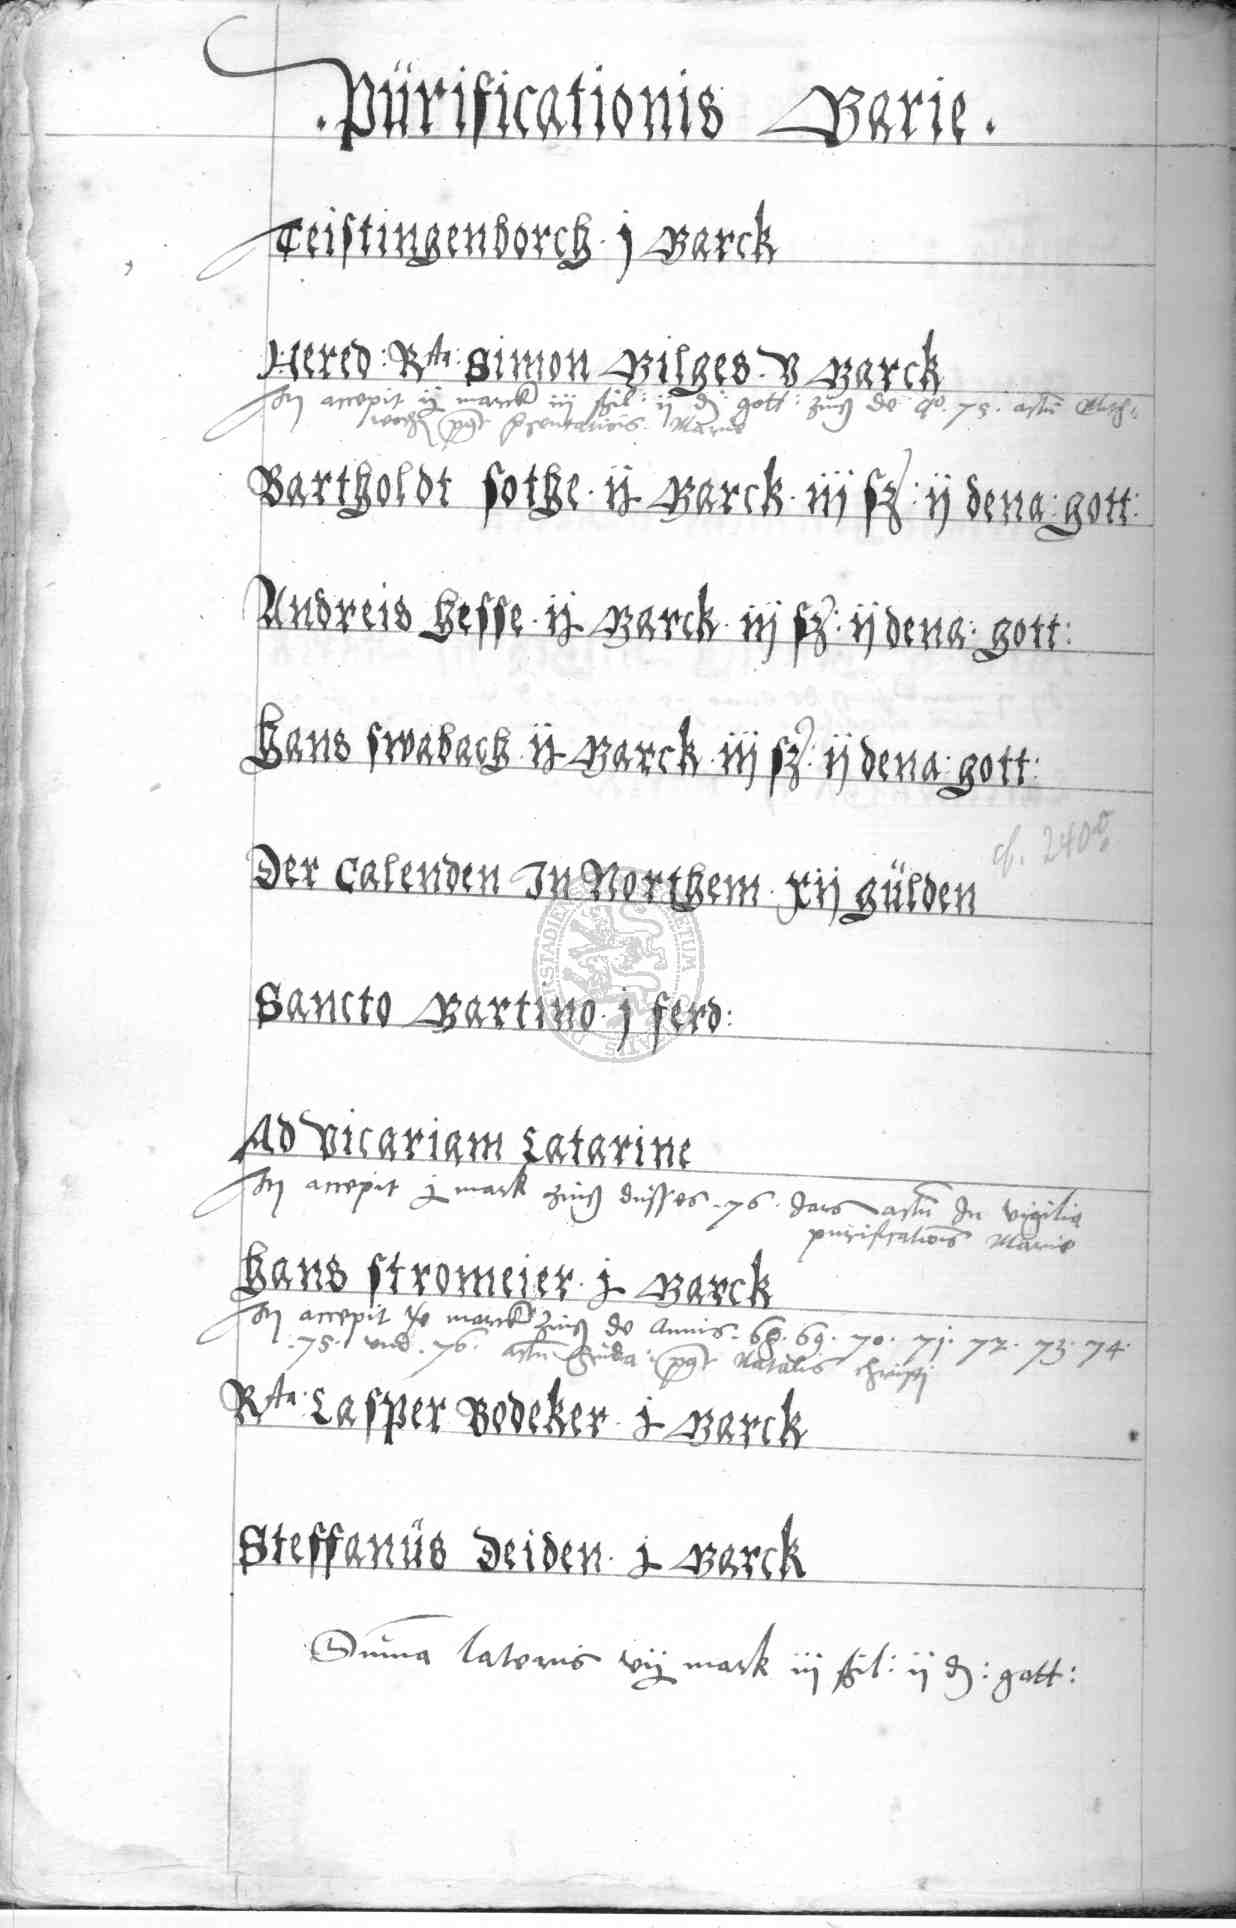 .Pürificationis Marie.
Teistingenborch · j Marck
Hered: Rta: Simon Hilges · v Marck
accepit ij marck iij ßil: ij d gott: zinß de ao. 75. actū
post presentationis Marie
Bartholdt sothe · ij Marck · iij sz: ij dena: gott:
Andreis hesse · ij Marck · iij sz: ij dena: gott:
Hans swabach · ij Marck · iij sz: ij dena: gott:
cf. 240
Der Calenden In Northem · xij gülden
Sancto Martino · j ferd:
Ad Vicariam Catarine
accepit j mark zinß düsses · 76 · Jars actū In vigilia
purificationis Marie
Hans stromeier · j Marck
accepit marck zinß de Annis · 68 · 69 · 70 · 71 · 72 · 73 · 74 ·
· 75 · und · 76 · actū post Natalis christi
Rta: Casper Bodeker · j Marck
Steffanüs Deiden · j Marck
Suma lateris vij mark iij ßil: ij d: gott: